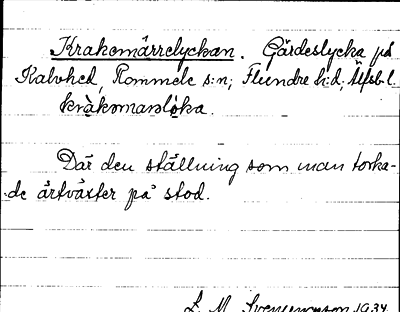 Krakemärrelyckan. Gärdeslycka på
Kalvhed, Rommele s:n; Flundre h:d; Älfsb.l.
kràkomarsløka.
Där den ställning som man torka-
de ärtväxter på stod.
L. M. Svensungsson 1934